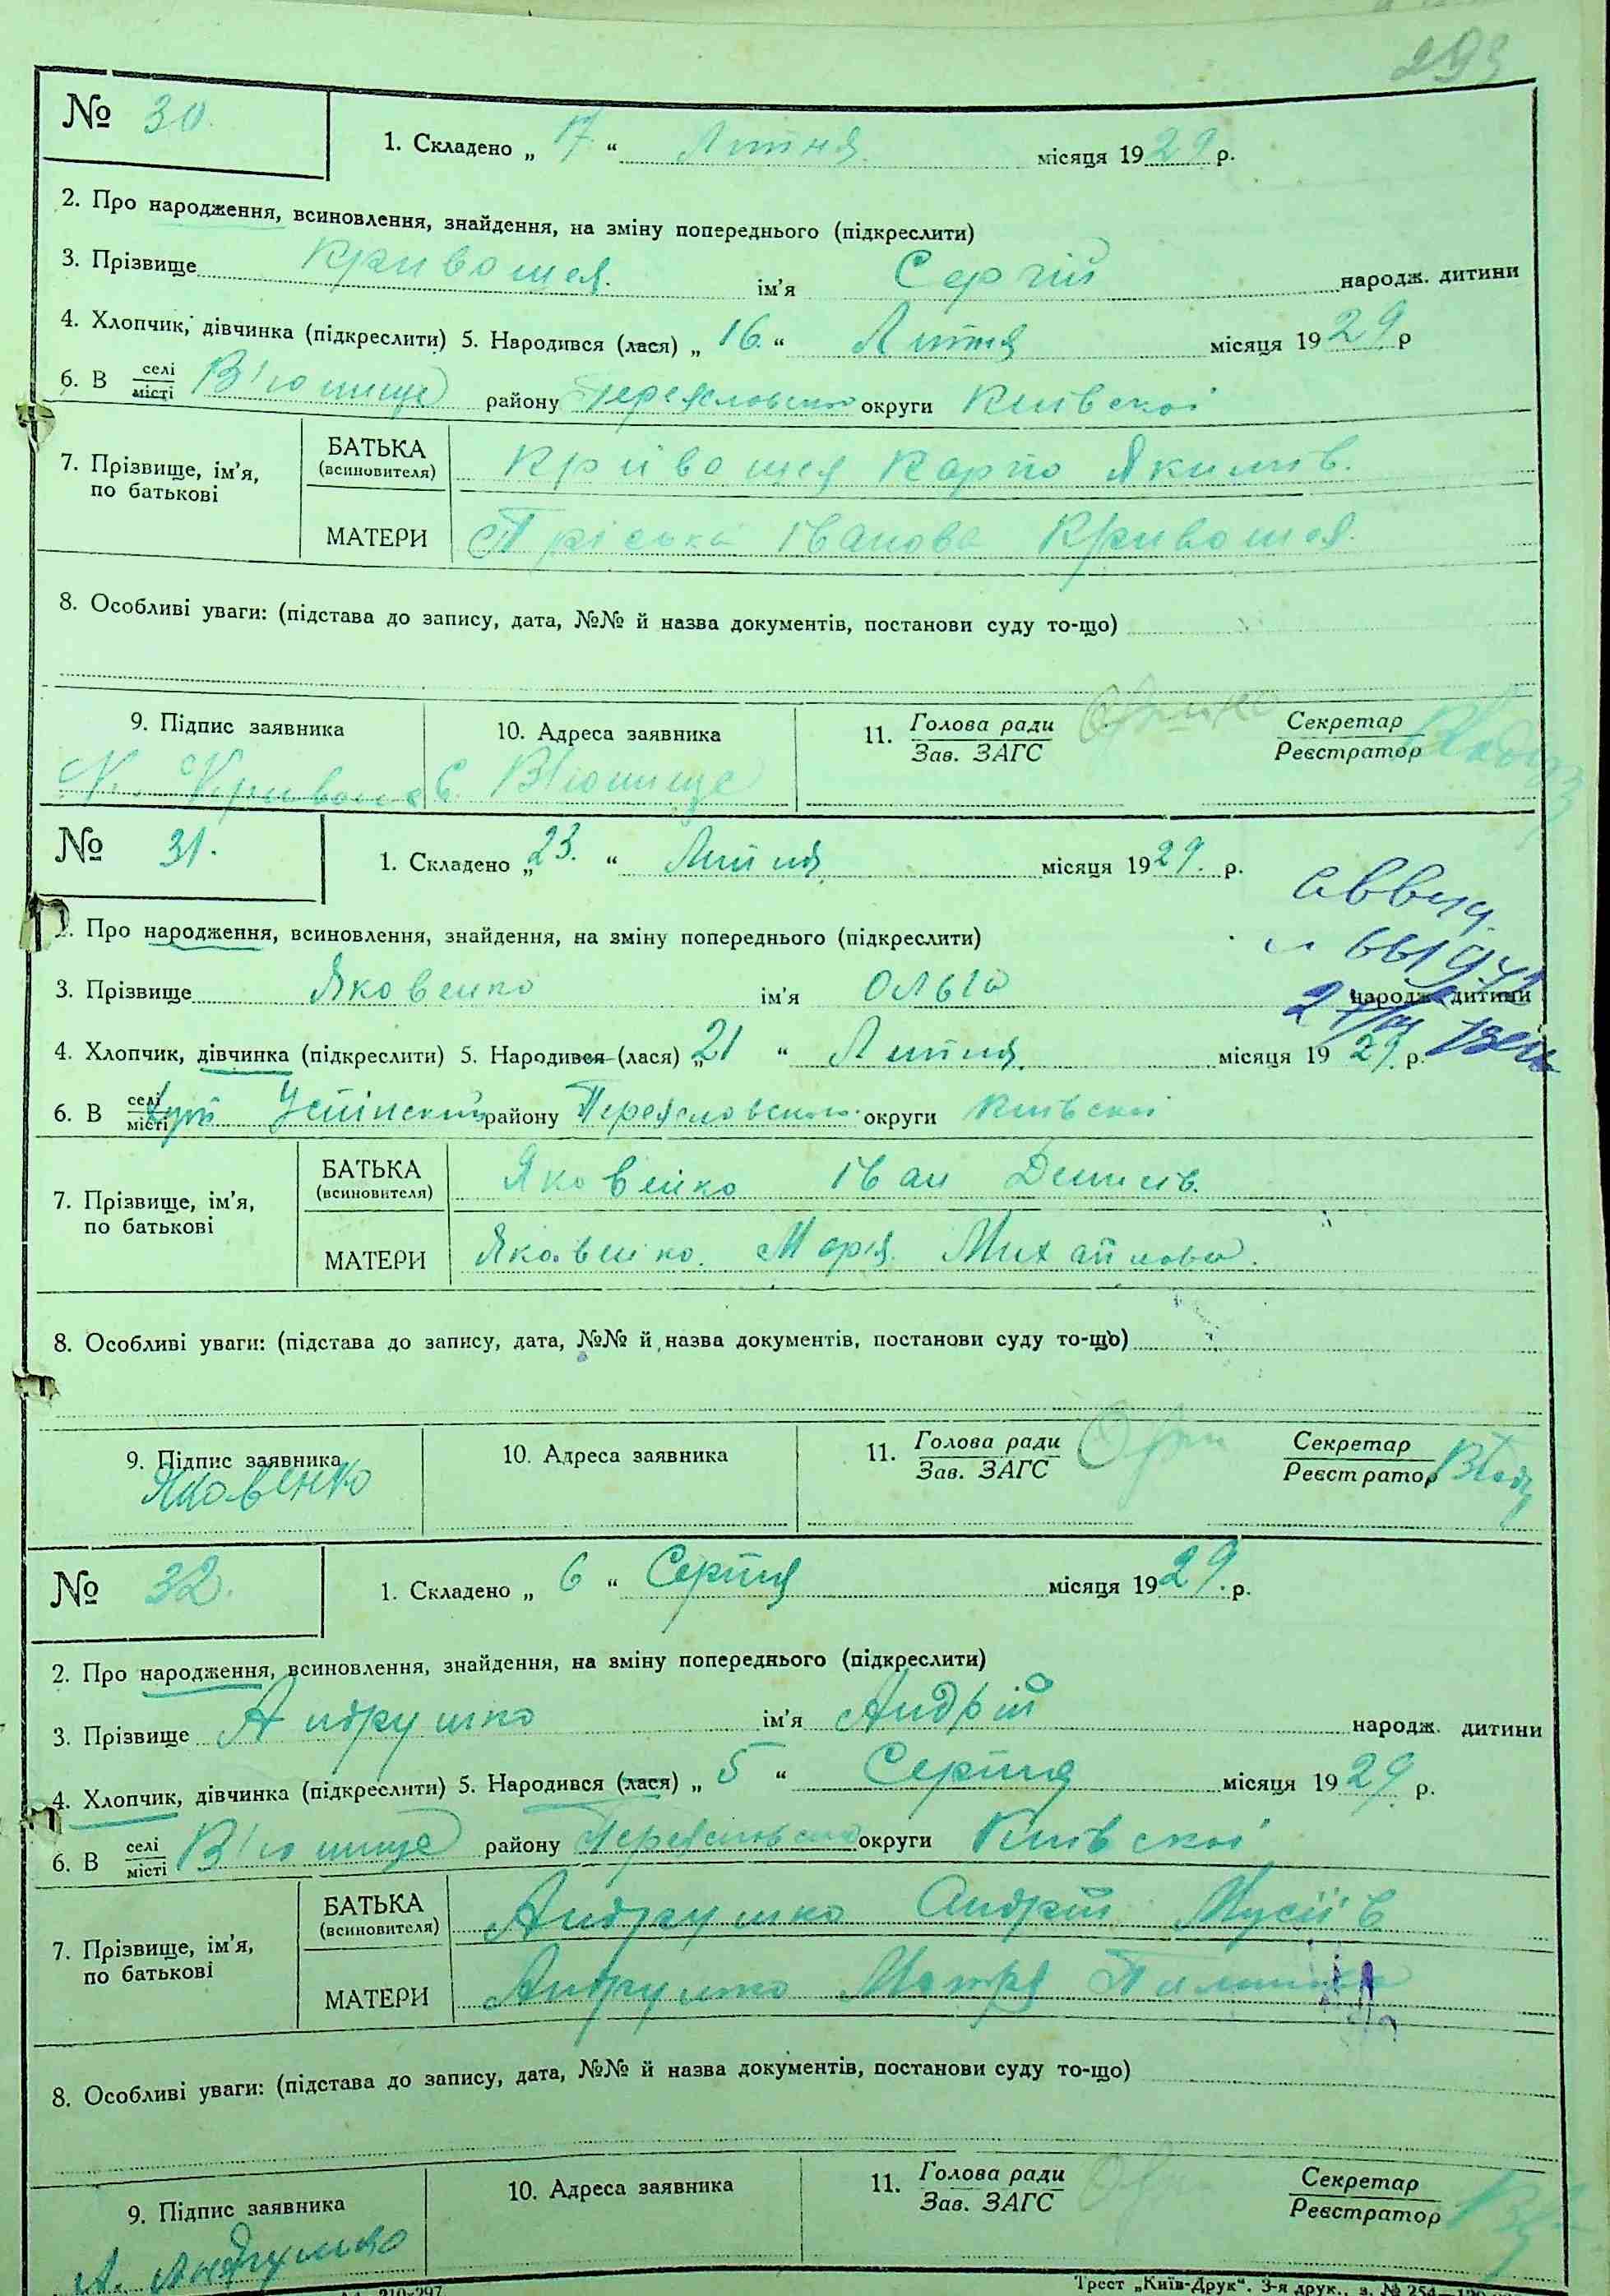 293
№ 30.
1. Складено „ 17 “ Липня місяця 1929 р.
2. Про народження, всиновлення, знайдення, на зміну попереднього (підкреслити)
3. Прізвище Кривошея. ім’я Сергій народж. дитини
4. Хлопчик, дівчинка (підкреслити) 5. Народився (лася) „ 16. “ Липня місяця 1929 р
6. В селі/місті В'юнище району Переяславської округи Київскої
7. Прізвище, ім’я, по батькові
БАТЬКА (всиновителя) Кривошея Карпо Якимів.
МАТЕРИ Пріська Іванова Кривошея.
8. Особливі уваги: (підстава до запису, дата, №№ й назва документів, постанови суду то-що)
9. Підпис заявника 10. Адреса заявника 11. Голова ради/Зав. ЗАГС Секретар/Реєстратор
К. Кривошея с. В'юнище
№ 31.
1. Складено „23. “ Липня місяця 1929. р.
2. Про народження, всиновлення, знайдення, на зміну попереднього (підкреслити)
3. Прізвище Яковенко ім’я Ольга народж. дитини
4. Хлопчик, дівчинка (підкреслити) 5. Народився (лася) „21 “ Липня місяця 1929 р.
6. В селі/місті хут Успінский району Переяславського округи Київскої
7. Прізвище, ім’я, по батькові
БАТЬКА (всиновителя) Яковенко Іван Денисів.
МАТЕРИ Яковенко. Марія Михайлова.
8. Особливі уваги: (підстава до запису, дата, №№ й назва документів, постанови суду то-що)
9. Підпис заявника 10. Адреса заявника 11. Голова ради/Зав. ЗАГС Секретар/Реєстратор
Яковенко
№ 32.
1. Складено „ 6 “ Серпня місяця 1929. р.
2. Про народження, всиновлення, знайдення, на зміну попереднього (підкреслити)
3. Прізвище Андрушко ім’я Андрій народж. дитини
4. Хлопчик, дівчинка (підкреслити) 5. Народився (лася) „ 5 “ Серпня місяця 1929 р.
6. В селі/місті В'юнище району Переяславської округи Київскої
7. Прізвище, ім’я, по батькові
БАТЬКА (всиновителя) Андрушко Андрій Мусіїв
МАТЕРИ Андрушко Мотря
8. Особливі уваги: (підстава до запису, дата, №№ й назва документів, постанови суду то-що)
9. Підпис заявника 10. Адреса заявника 11. Голова ради/Зав. ЗАГС Секретар/Реєстратор
А. Андрушко
Трест „Київ-Друк“. 3-я друк., з. № 254